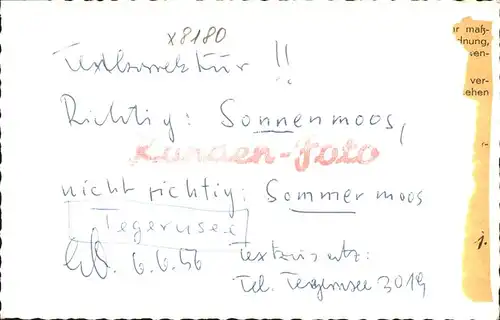 x8180
Textkorrektur !!
Richtig: Sonnenmoos,
Kunden-Foto
nicht richtig: Sommermoos
Tegernsee
6.6.56 Textzusatz:
Tel. Tegernsee 3019
r maß-
dnung,
sen-
ver-
ehen